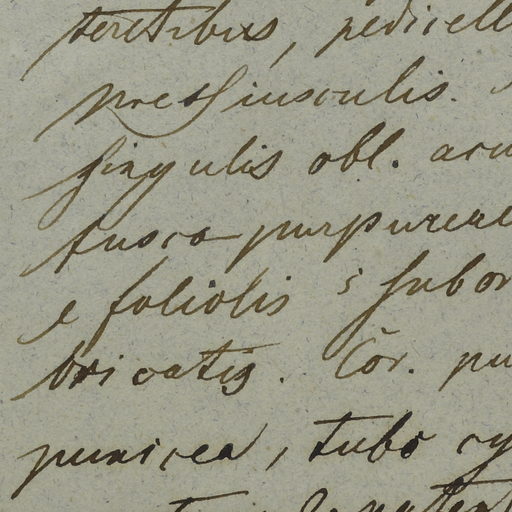 teretibus, pedicell
presſiusculis.
ſingulis obl. acu
fusco purpureae
e foliolis 5 ſubor
bricatis. Cor. pu
punicea, tubo cy